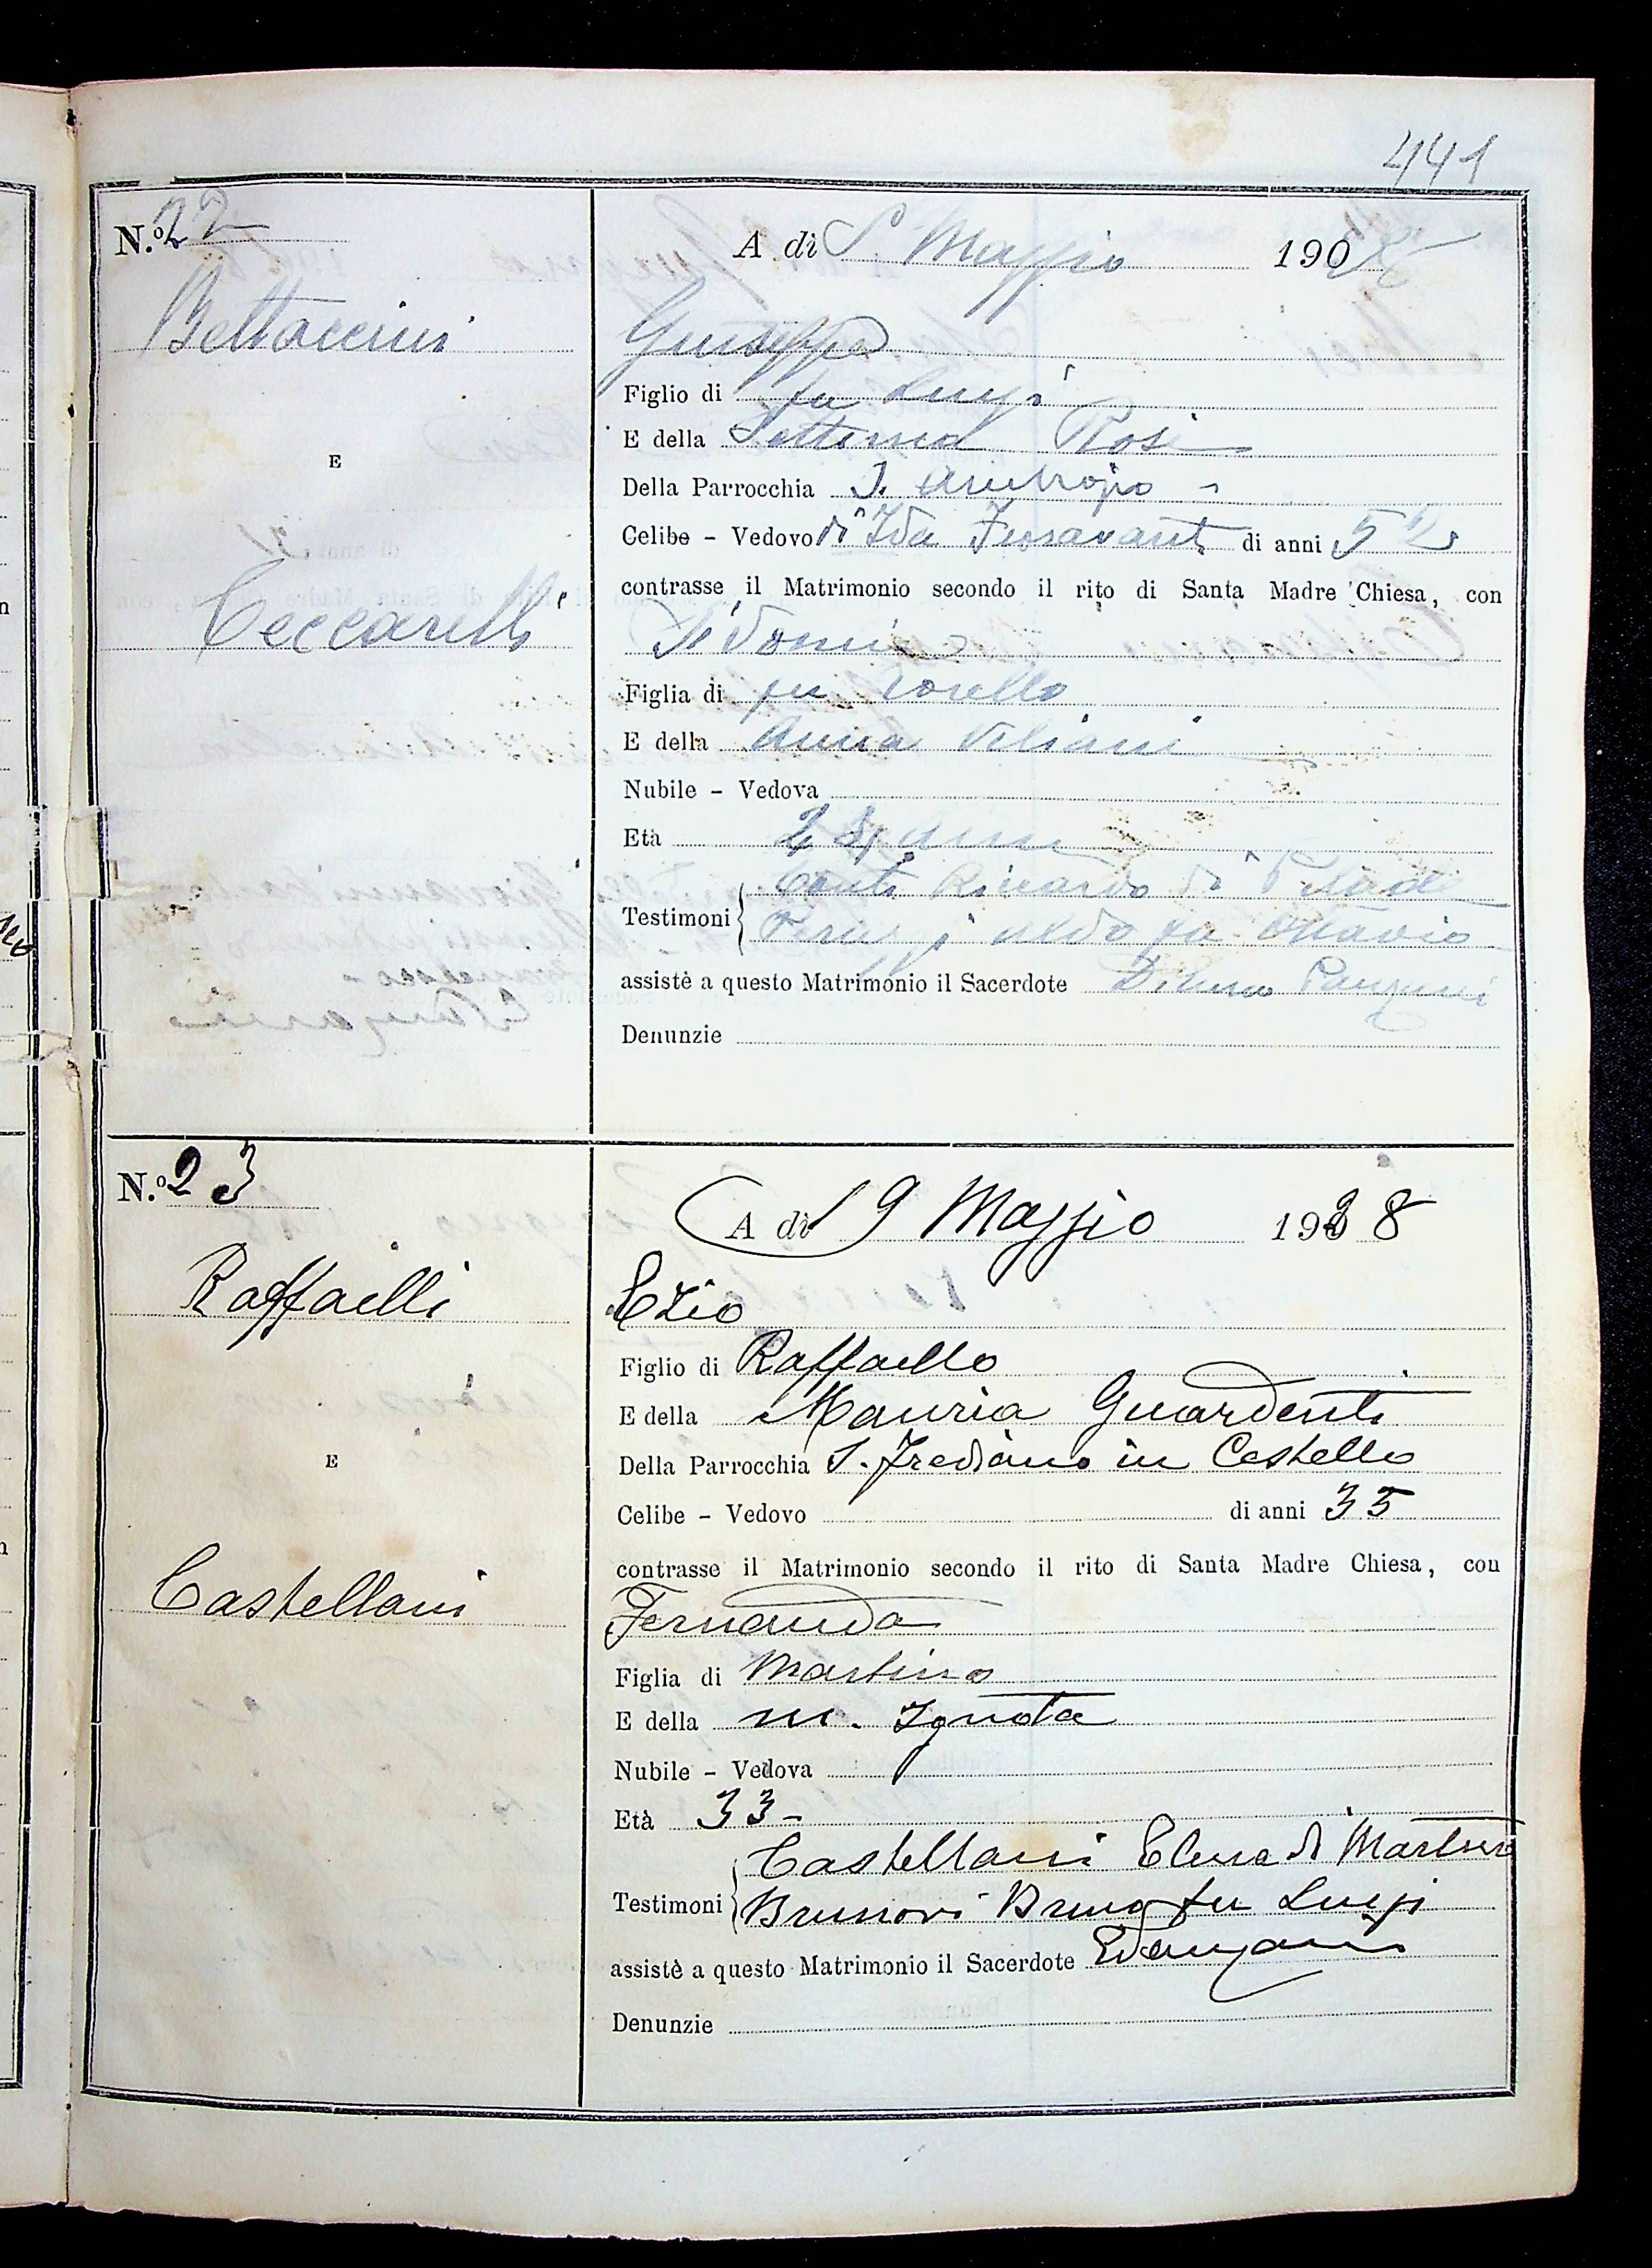 441
N.º 22
A dì Maggio 190
Bettaccini
Giuseppe
Figlio di fu Luigi
E della Settimia Rosi
E
Della Parrocchia S. Ambrogio -
Celibe - Vedovo di Ida Fioravanti di anni 52
contrasse il Matrimonio secondo il rito di Santa Madre Chiesa, con
Ceccarelli
Figlia di fu Torello
E della Anna Viliani
Nubile - Vedova
Età anni
Testimoni Conti Riccardo di
Aldo fu Ottavio
assistè a questo Matrimonio il Sacerdote
Denunzie
N.º 23
A dì 19 Maggio 1928
Raffaelli
Ezio
Figlio di Raffaello
E della Mauria Guardenti
E
Della Parrocchia S. Frediano in Cestello
Celibe - Vedovo di anni 35
contrasse il Matrimonio secondo il rito di Santa Madre Chiesa, con
Castellani
Fernanda
Figlia di Martino
E della m. Ignota
Nubile - Vedova
Età 33 -
Testimoni Castellani Elena di Martino
Brunori Bruno fu Luigi
assistè a questo Matrimonio il Sacerdote
Denunzie